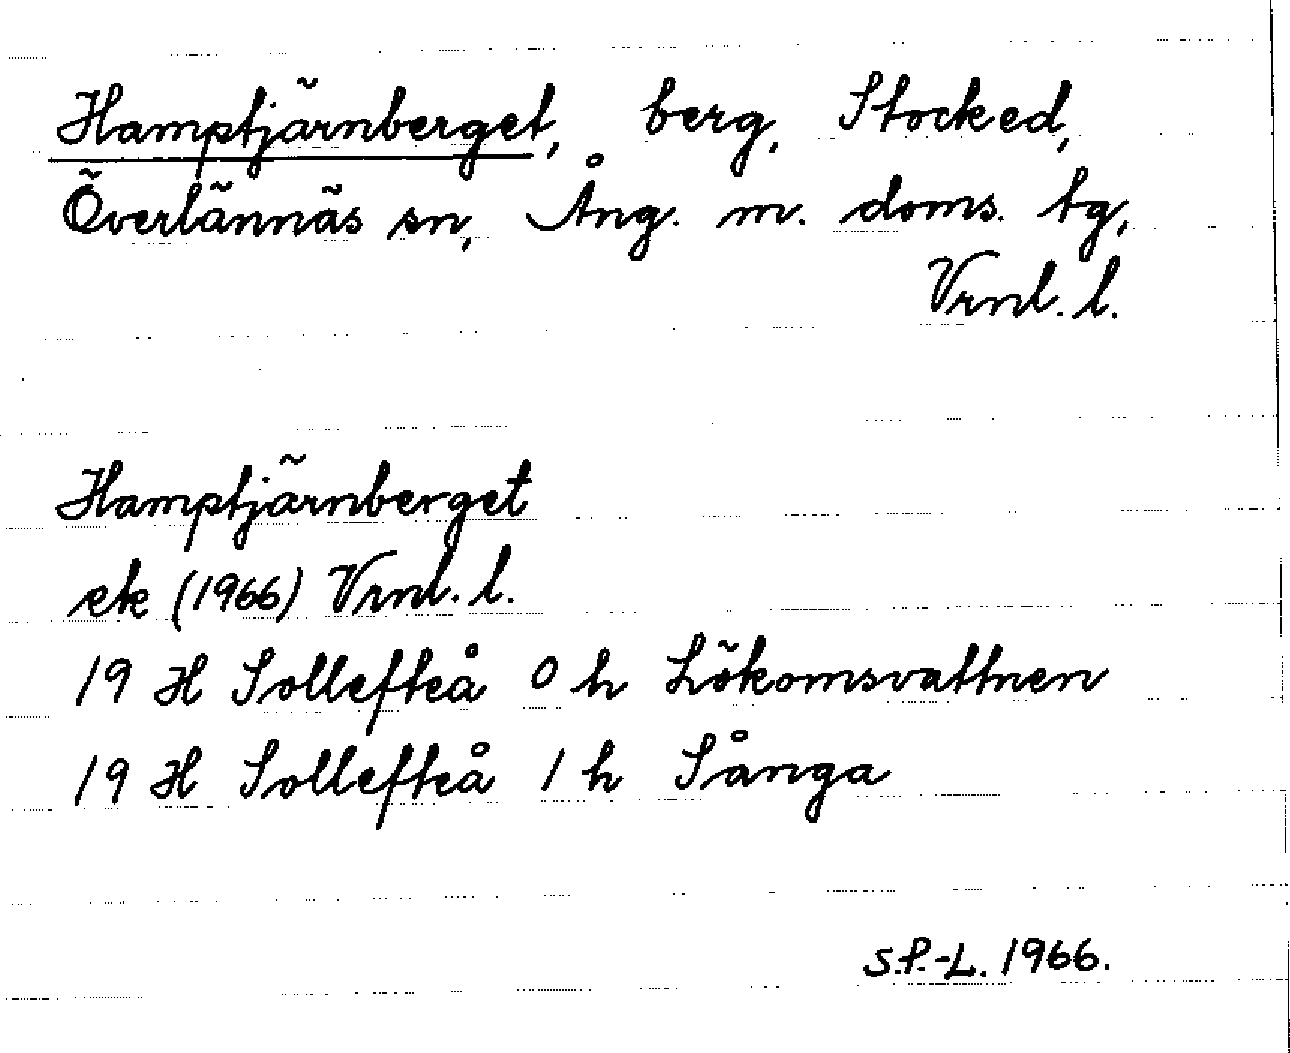 Hamptjärnberget, berg, Stocked,
Överlännäs sn, Ång. m. doms. tg,
Vrnl. l.
Hamptjärnberget
ek (1966) Vrnl. l.
19 H Sollefteå 0 h Lökomsvattnen
19 H Sollefteå 1 h Sånga
S.P.-L. 1966.